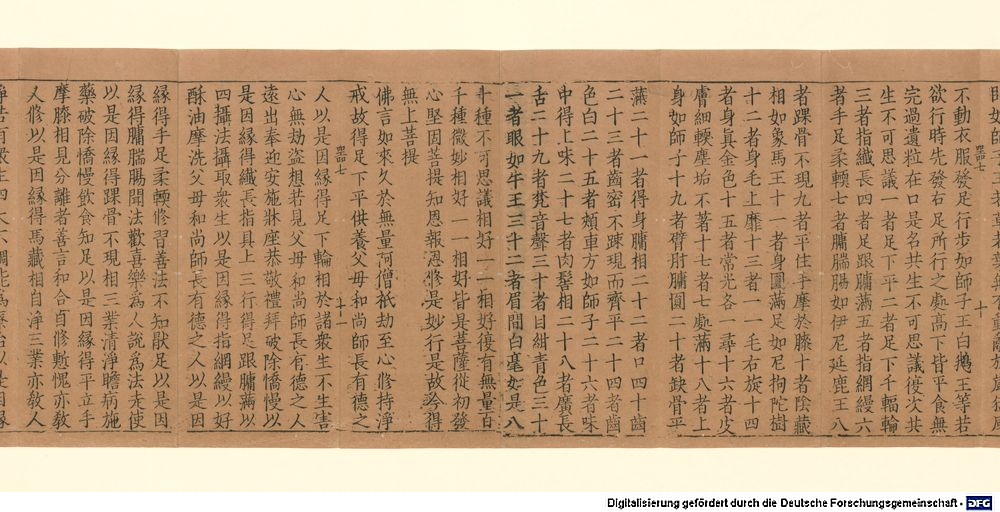 不動衣服發足行步如師子王白鵝王等若
欲行時先發右足所行之處高下皆平食無
完過遺粒在口是名共生不可思議後次共
生不可思議一者足下平二者足下千輻輪
三者指纖長四者足跟𦟛滿五者指網縵六
者手足柔輭七者𦟛腨腸如伊尼延鹿王八
者踝骨不現九者平住手摩於膝十者陰藏
相如象馬王十一者身圓滿足如尼拘陀樹
十二者身毛上靡十三者一一毛右旋十四
者身真金色十五者常光各一尋十六者皮
膚細輭塵垢不著十七者七處滿十八者上
身如師子十九者臂肘𦟛圓二十者缺骨平
滿二十一者得身𦟛相二十二者口四十齒
二十三者齒密不踈現而齊平二十四者齒
色白二十五者頰車方如師子二十六者味
中得上味二十七者肉髻相二十八者廣長
舌二十九者梵音聲三十者目紺青色三十
一者眼如牛王三十二者眉間白毫如是八
十種不可思議相好一一相好復有無量百
千種微妙相好一一相好皆是菩薩從初發
心堅固菩提知恩報恩修是妙行是故今得
無上菩提
佛言如來久於無量阿僧祇劫至心修持淨
戒故得足下平供養父母和尚師長有德之
十一
人以是因緣得足下輪相於諸衆生不生害
心無劫盜想若見父母和尚師長有德之人
遠出奉迎安施牀座恭敬禮拜破除憍慢以
是因緣得纖長指具上三行得足跟𦟛滿以
四攝法攝取衆生以是因緣得指網縵以好
酥油摩洗父母和尚師長有德之人以是因
緣得手足柔輭修習善法不知猒足以是因
緣得𦟛腨腸聞法歡喜樂爲人說爲法走使
以是因緣得踝骨不現相三業清淨瞻病施
藥破除憍慢飲食知足以是因緣得平立手
摩膝相見分離者善言和合自修慙愧亦敎
人修以是因緣得馬藏相自淨三業亦敎人
Digitalisierung gefördert durch die Deutsche Forschungsgemeinschaft - DFG